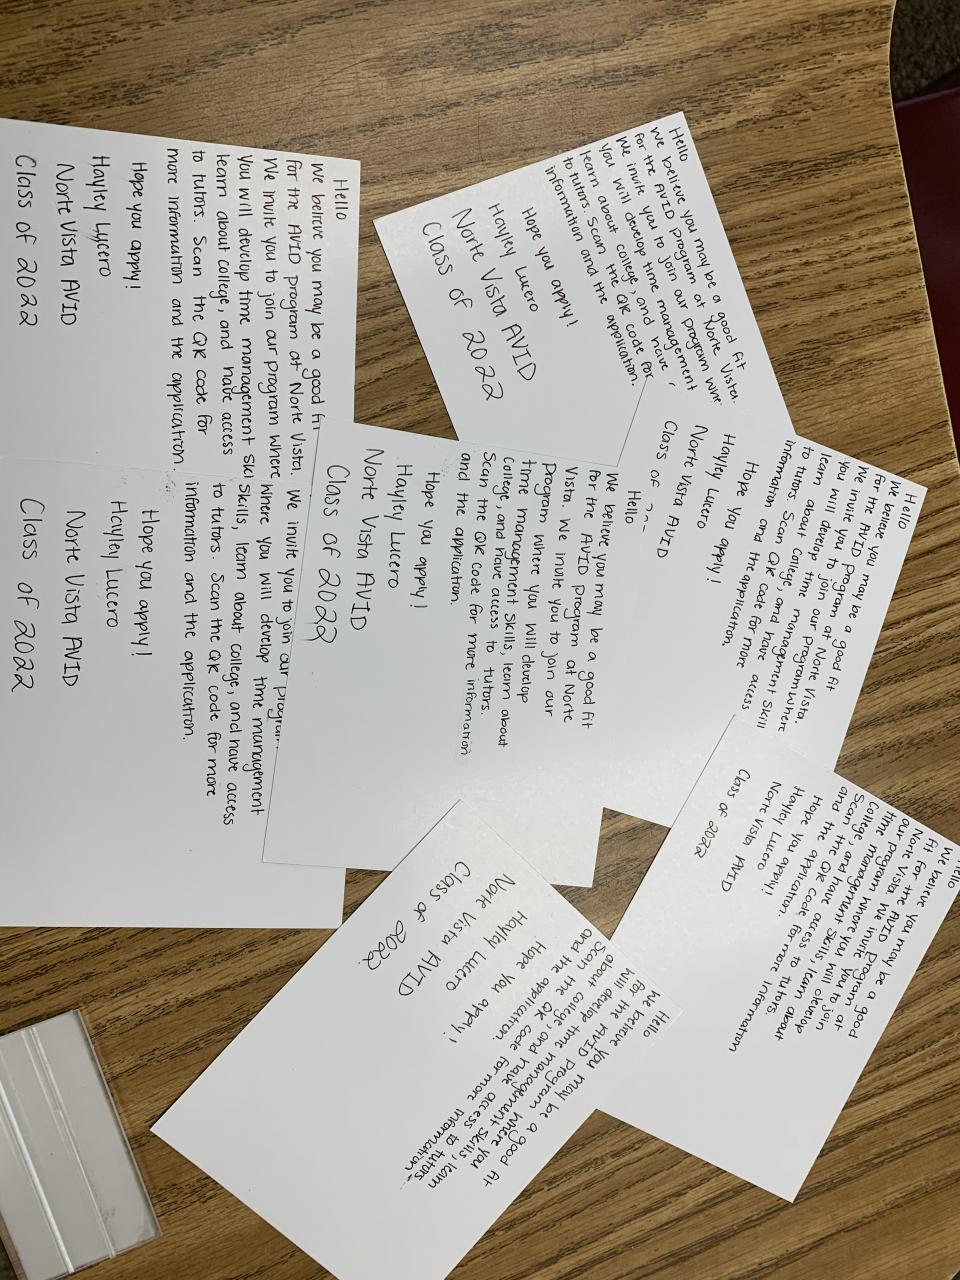 Hello
We believe you may be a good fit
for the AVID program at Norte Vista.
We invite you to join our program where
you will develop time management
learn about college, and have
to tutors. Scan the QR code for
information and the application.
Hope you apply!
Hayley Lucero
Norte Vista AVID
Class of 2022
Hello
We believe you may be a good fit
for the AVID program at Norte Vista.
We invite you to join our program where
you will develop time management skill
learn about college, and have access
to tutors. Scan QR code for more
information and the application.
Hope you apply!
Hayley Lucero
Norte Vista AVID
Class of
Hello
We believe you may be a good
fit for the AVID program at
Norte Vista. We invite you to join
our program where you will develop
time management skills, learn about
college, and have access to tutors.
Scan the QR code for more information
and the application.
Hope you apply!
Hayley Lucero
Norte Vista AVID
Class of 2022
Hello
We believe you may be a good fit
for the AVID program at Norte
Vista. We invite you to join our
program where you will develop
time management skills, learn about
college, and have access to tutors.
Scan the QR code for more information
and the application.
Hope you apply!
Hayley Lucero
Norte Vista AVID
Class of 2022
Hello
We believe you may be a good fit
for the AVID program where you
will develop time management skills, learn
about college, and have access to tutors.
Scan the QR code for more information
and the application.
Hope you apply!
Hayley Lucero
Norte Vista AVID
Class of 2022
Hello
We believe you may be a good fit
for the AVID program at Norte Vista.
We invite you to join our program where
you will develop time management ski
learn about college, and have access
to tutors. Scan the QR code for
more information and the application.
Hope you apply!
Hayley Lucero
Norte Vista AVID
Class of 2022
We invite you to join our program
where you will develop time management
skills, learn about college, and have access
to tutors. Scan the QR code for more
information and the application.
Hope you apply!
Hayley Lucero
Norte Vista AVID
Class of 2022